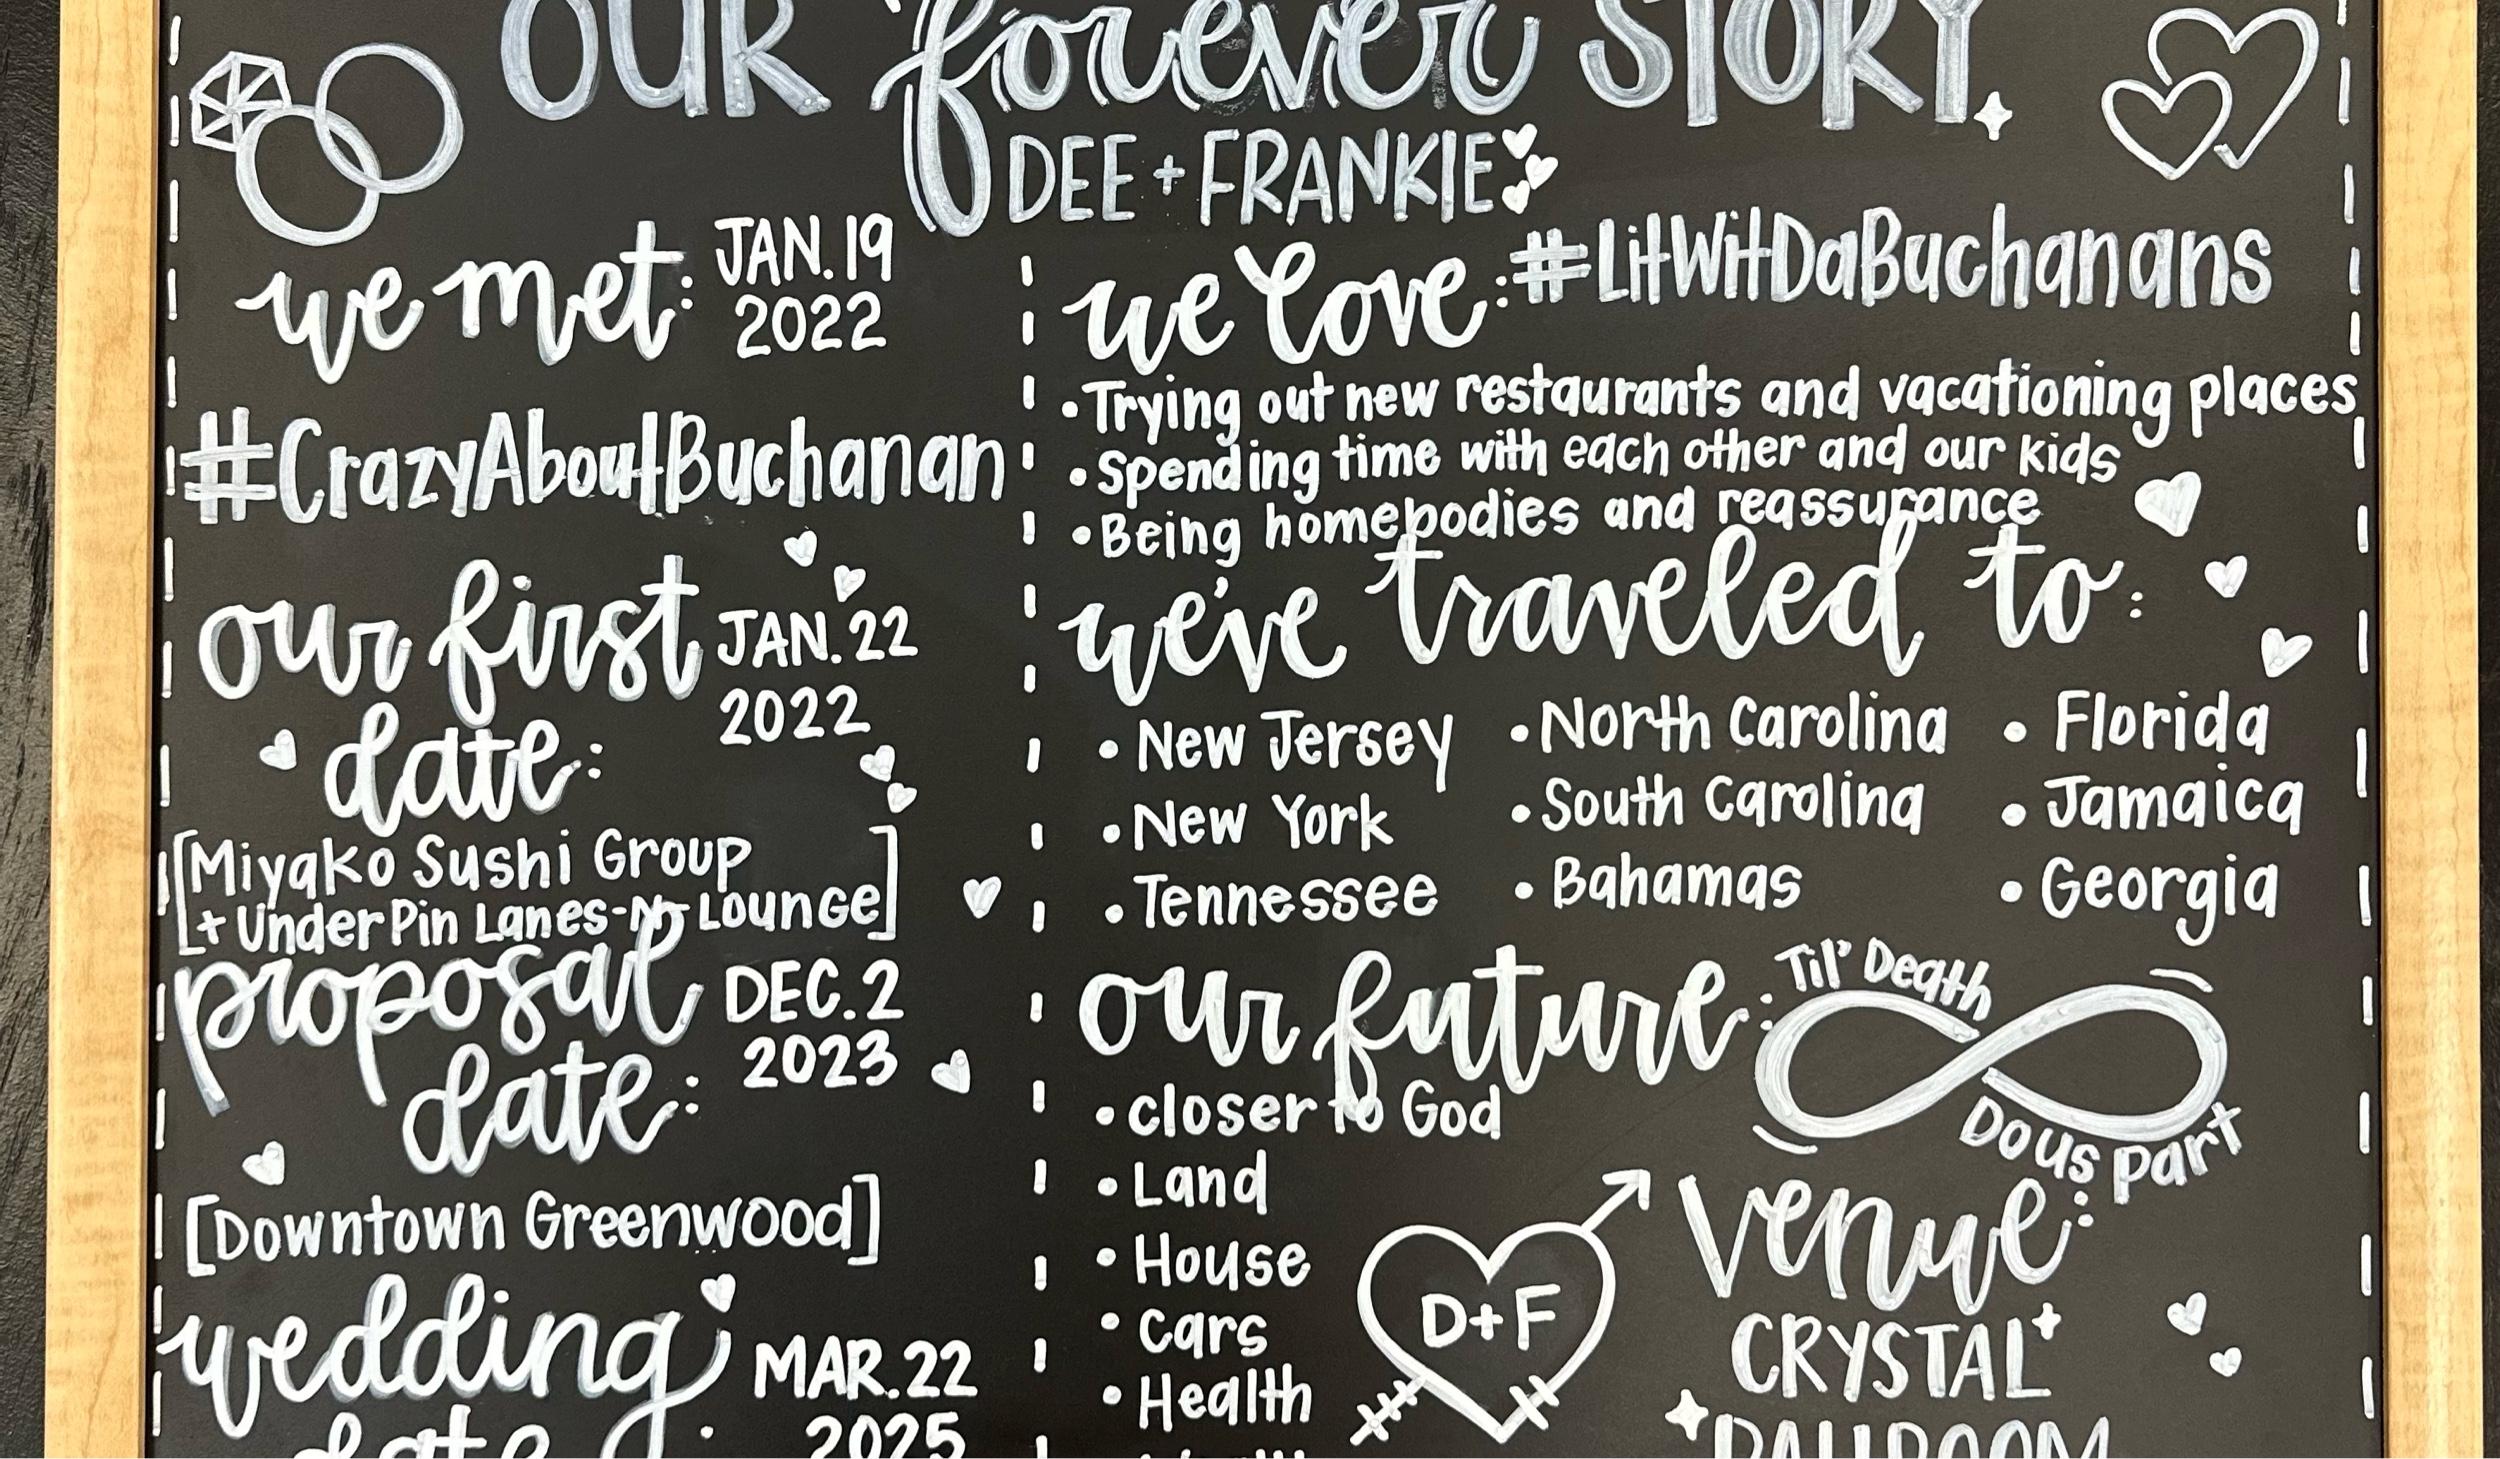 OUR forever STORY
DEE + FRANKIE
we met: JAN. 19
2022
#CrazyAboutBuchanan
our first JAN. 22
date: 2022
[Miyako Sushi Group
+ UnderPin Lanes- Lounge]
proposal DEC. 2
date: 2023
[Downtown Greenwood]
wedding MAR. 22
date: 2025
we love: #LitWitDaBuchanans
• Trying out new restaurants and vacationing places
• Spending time with each other and our kids
• Being homebodies and reassurance
we've traveled to:
• New Jersey • North Carolina • Florida
• New York • South Carolina • Jamaica
• Tennessee • Bahamas • Georgia
our future: Til' Death
Do us part
• closer to God
• Land
• House
• Cars
• Health
D+F
venue:
CRYSTAL
BALLROOM